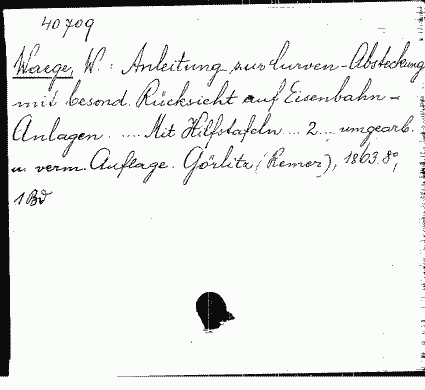 40709
Waege, W. : Anleitung zur Curven-Absteckung
mit besond. Rücksicht auf Eisenbahn-
Anlagen. .... Mit Hilfstafeln ... 2 ... umgearb.
u. verm. Auflage. Görlitz, (Remer), 1863. 8°,
1 Bd